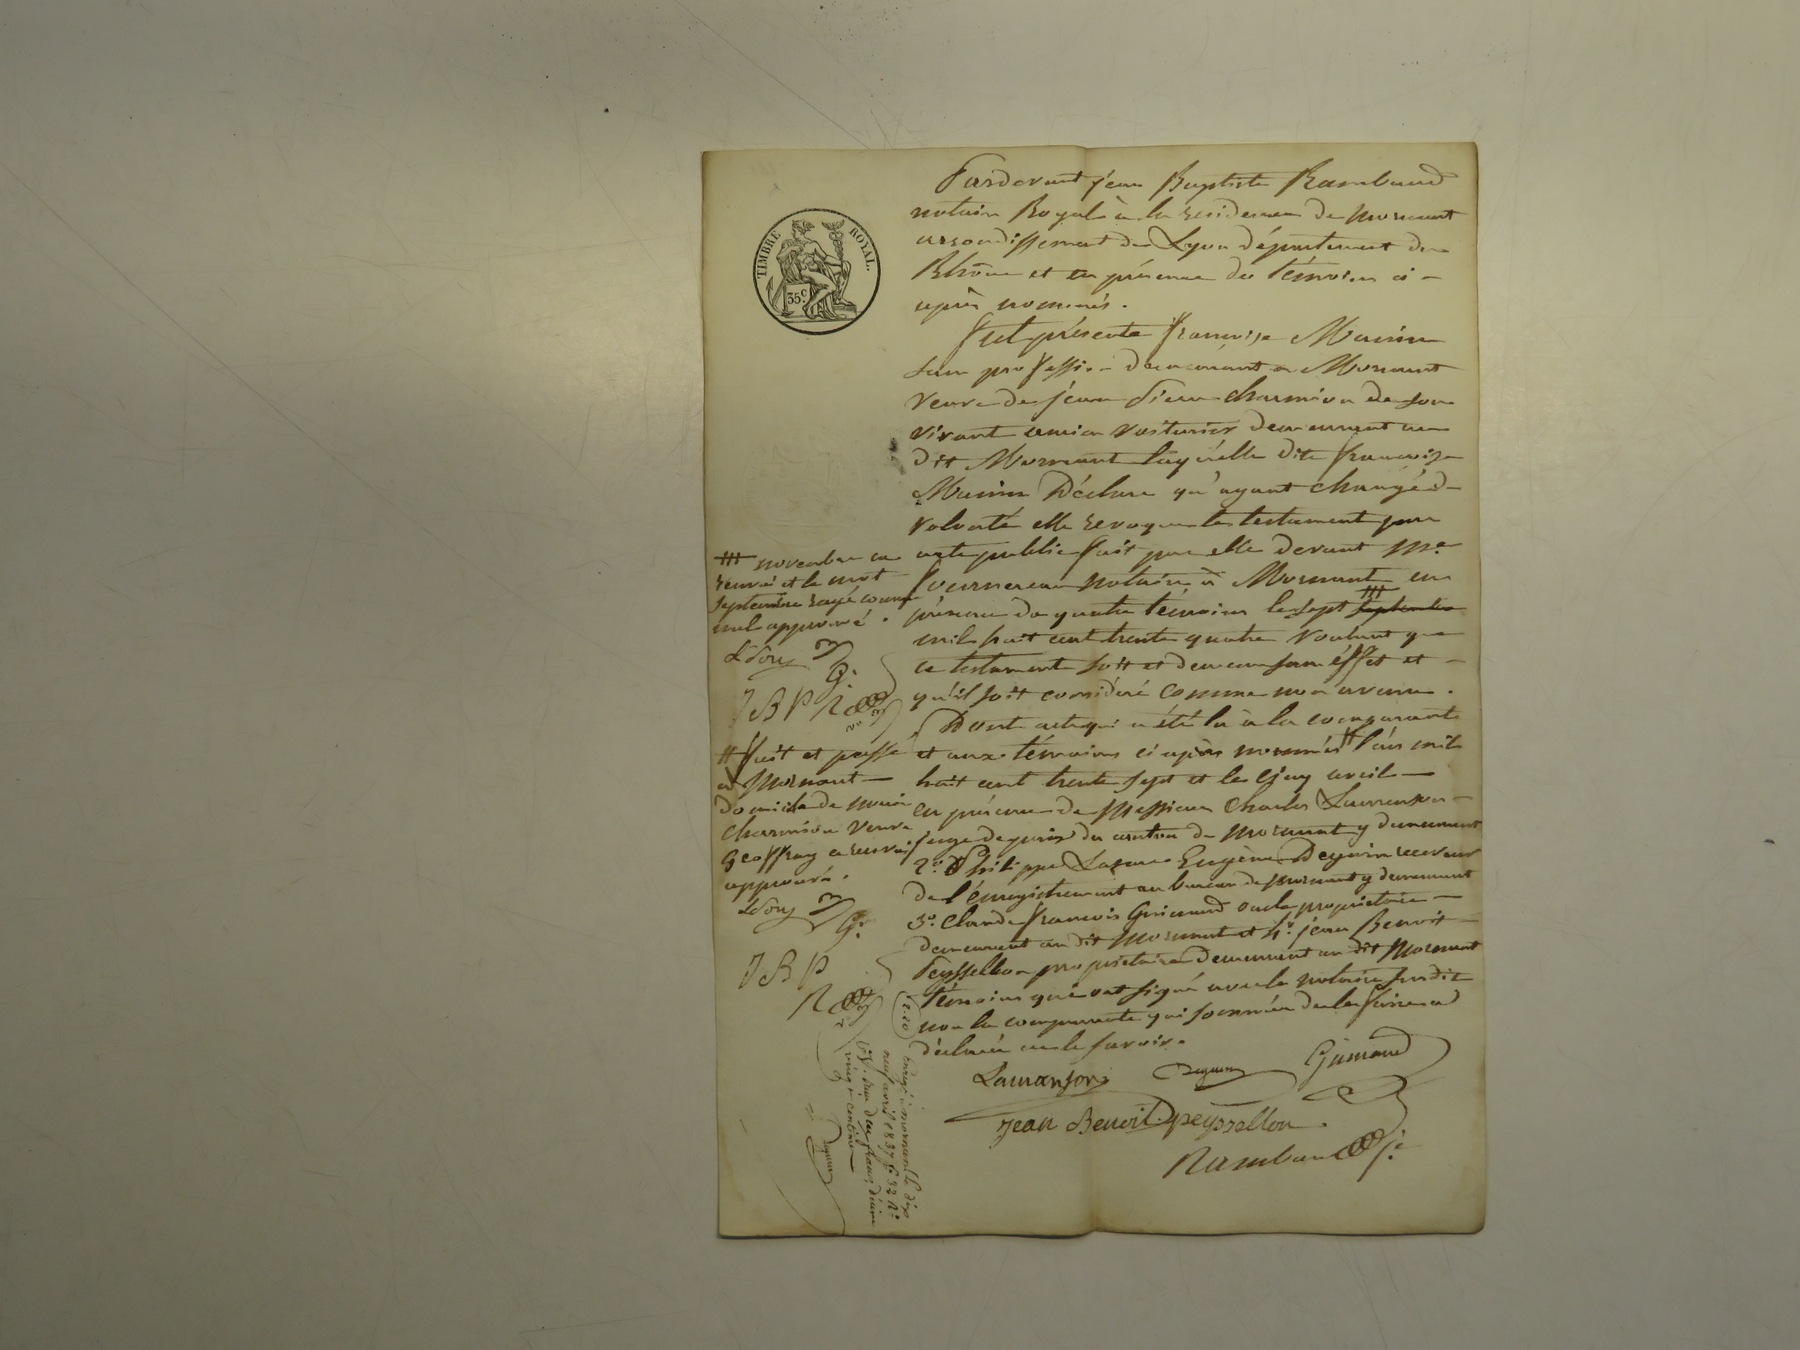 TIMBRE ROYAL.
35c.
Pardevant jean Baptiste Rambaud
notaire Royal à la residence de Mornant
arrondissement de Lyon département du
Rhône et en présence des témoins ci-
après nommés.
Fut présente françoise Mein
sans profession demeurant a Mornant
veuve de jean Pierre charmion de son
vivant voiturier demeurant au
dit Mornant laquelle dite françoise
Déclare qu'ayant changé de
volonté elle revoque le testament par
acte public fait par elle devant Me
notaire à Mornant en
présence de quatre témoins le sept septembre
mil huit cent trente quatre voulant que
ce testament soit et demeure sans éffet et
qu'il soit considéré comme non avenu.
Dont acte qui a été lu à la comparante
et aux témoins ci après nommés # l'an mil
huit cent trente sept et le avril
en présence de Messieurs Charles Lauranson
juge de paix du canton de Mornant y demeurant
2° Philippe Lazare Eugène Deguin receveur
de l'énregistrement au bureau de Mornant y demeurant
3° Claude françois Grimaud propriétaire
demeurant au dit Mornant et 4° jean Benoit
Peyssellon propriétaire demeurant au dit Mornant
témoins qui ont signé avec le notaire susdit
non la comparante qui sommée de le faire a
déclaré ne le savoir.
novembre en
renvoi et le mot
septembre rayé comme
nul approuvé.
G.
J B P
# fait et passé
à Mornant
domicile de
charmion veuve
Geoffray en renvoi
approuvé.
G.
J B P
2.20
Enregé à mornant le
neuf avril 1837 f° 32 Ro
deux francs décime
vingt centimes
Deguin
Lauranson
Deguin
Grimaud
Jean Benoit peyssellon
Rambaud